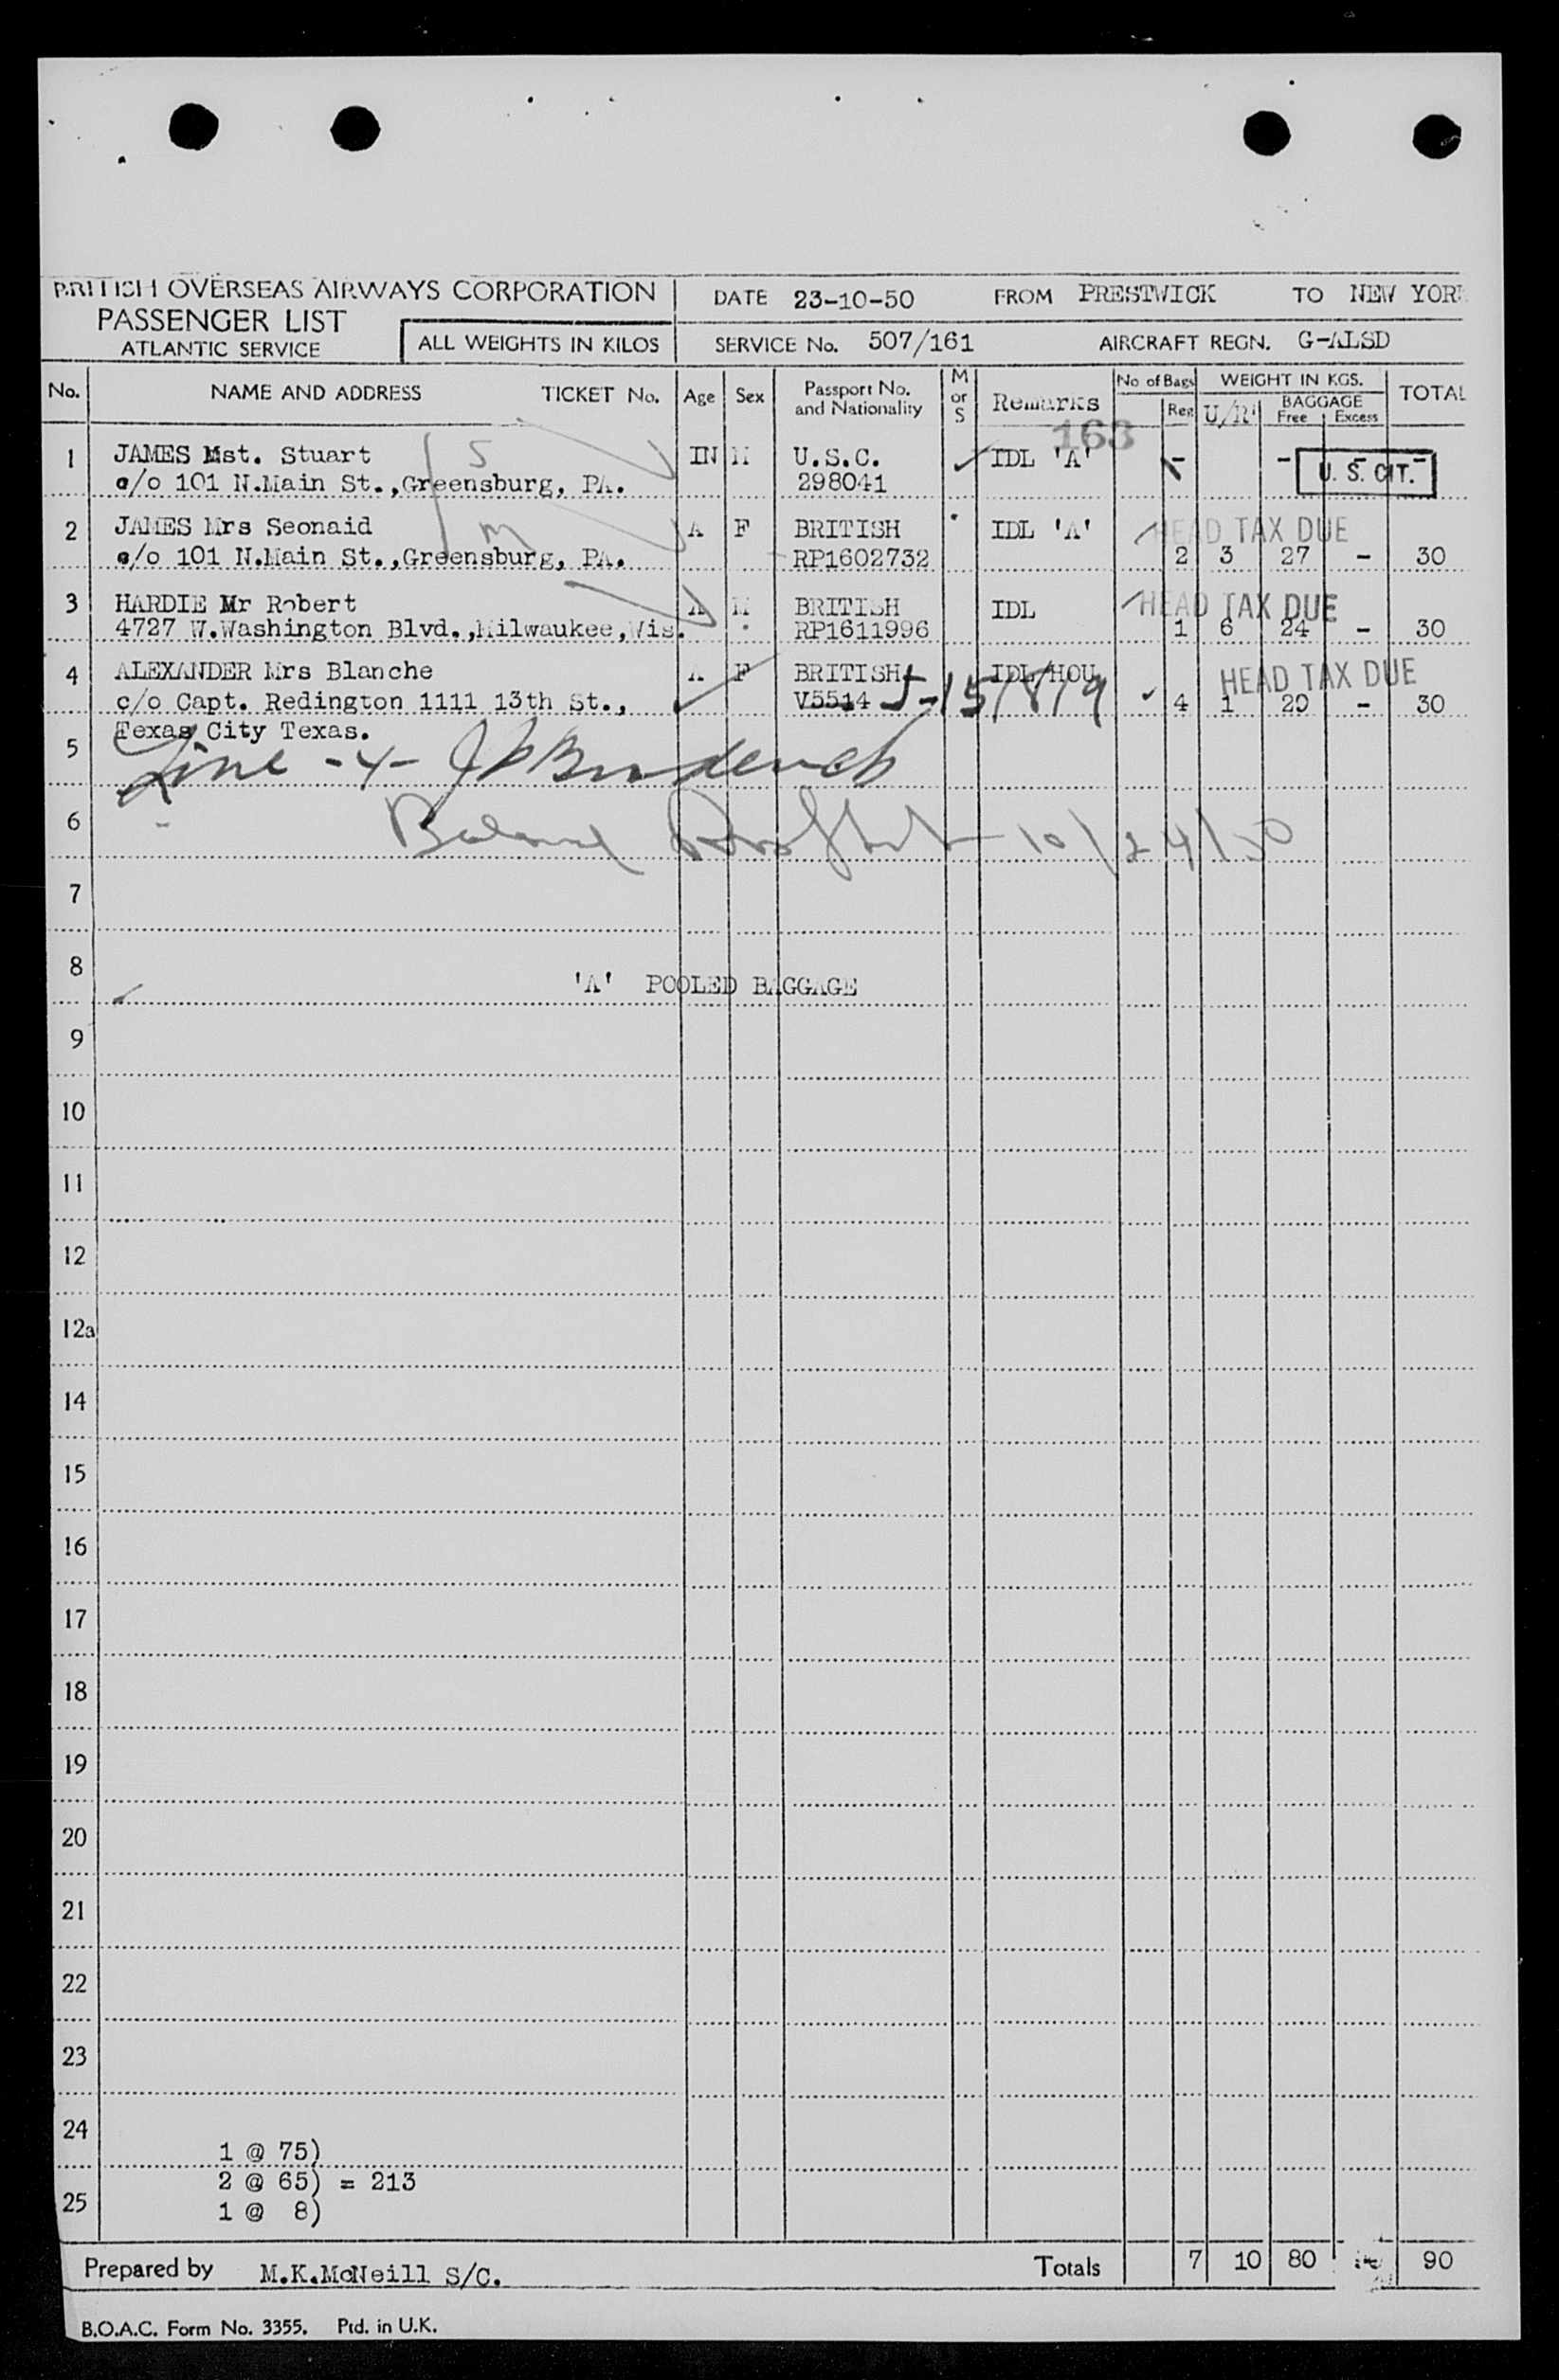 BRITISH OVERSEAS AIRWAYS CORPORATION
PASSENGER LIST
ATLANTIC SERVICE
ALL WEIGHTS IN KILOS
DATE 23-10-50 FROM PRESTWICK TO NEW YORK
SERVICE No. 507/161 AIRCRAFT REGN. G-ALSD
No. NAME AND ADDRESS TICKET No. Age Sex Passport No. and Nationality M or S Remarks No of Bags Reg WEIGHT IN KGS. U/R BAGGAGE Free Excess TOTAL
163
1 JAMES Mst. Stuart S IN M U.S.C. IDL 'A' - - - -
c/o 101 N.Main St.,Greensburg, PA. 298041 U. S. CIT.
2 JAMES Mrs Seonaid M A F BRITISH IDL 'A' HEAD TAX DUE
c/o 101 N.Main St.,Greensburg, PA. RP1602732 2 3 27 - 30
3 HARDIE Mr Robert A M BRITISH IDL HEAD TAX DUE
4727 W.Washington Blvd.,Milwaukee,Wis. RP1611996 1 6 24 - 30
4 ALEXANDER Mrs Blanche A F BRITISH IDL/HOU HEAD TAX DUE
c/o Capt. Redington 1111 13th St., V5514 4 1 29 - 30
Texas City Texas.
5 Line -4-
6 10/24/50
7
8 'A' POOLED BAGGAGE
9
10
11
12
12a
14
15
16
17
18
19
20
21
22
23
24
1 @ 75)
2 @ 65) = 213
25 1 @ 8)
Prepared by M.K.McNeill S/C. Totals 7 10 80 90
B.O.A.C. Form No. 3355. Ptd. in U.K.